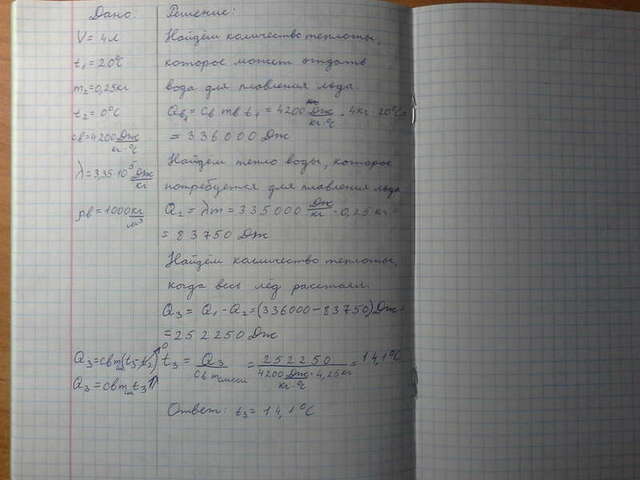 Дано
V = 4л
t₁ = 20°C
m₂ = 0,25кг
t₂ = 0°C
cв = 4200 Дж/кг·°C
λ = 3,35·10⁵ Дж/кг
ρв = 1000 кг/м³
Q₃ = cвm(t₃-t₂)⁰
Q₃ = cвm t₃
Решение:
Найдём количество теплоты,
которое может отдать
вода для плавления льда
Qв₁ = cв mв t₁ = 4200 Дж/кг·°C · 4кг · 20°C =
= 336000 Дж
Найдём тепло воды, которое
потребуется для плавления льда
Q₂ = λm = 335000 Дж/кг · 0,25 кг =
= 83750 Дж
Найдём количество теплоты,
когда весь лёд растаял.
Q₃ = Q₁ - Q₂ = (336000 - 83750) Дж =
= 252250 Дж
t₃ = Q₃/cв mсмеси = 252250/4200 Дж/кг·°C · 4,25кг = 14,1°C
Ответ: t₃ = 14,1°C